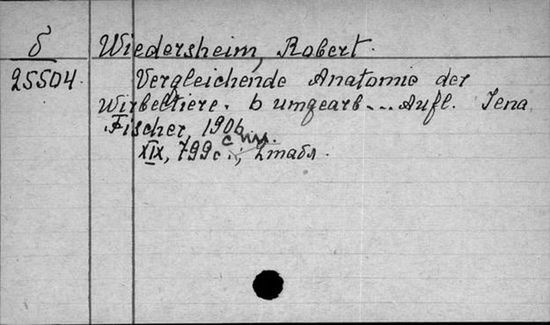 б Wiedersheim, Robert.
25504. Vergleichende Anatomie der
Wirbeltiere. 6 umgearb... Aufl. Jena
Fischer, 1906
с илл.
XIX, 799 с.; 2 табл.